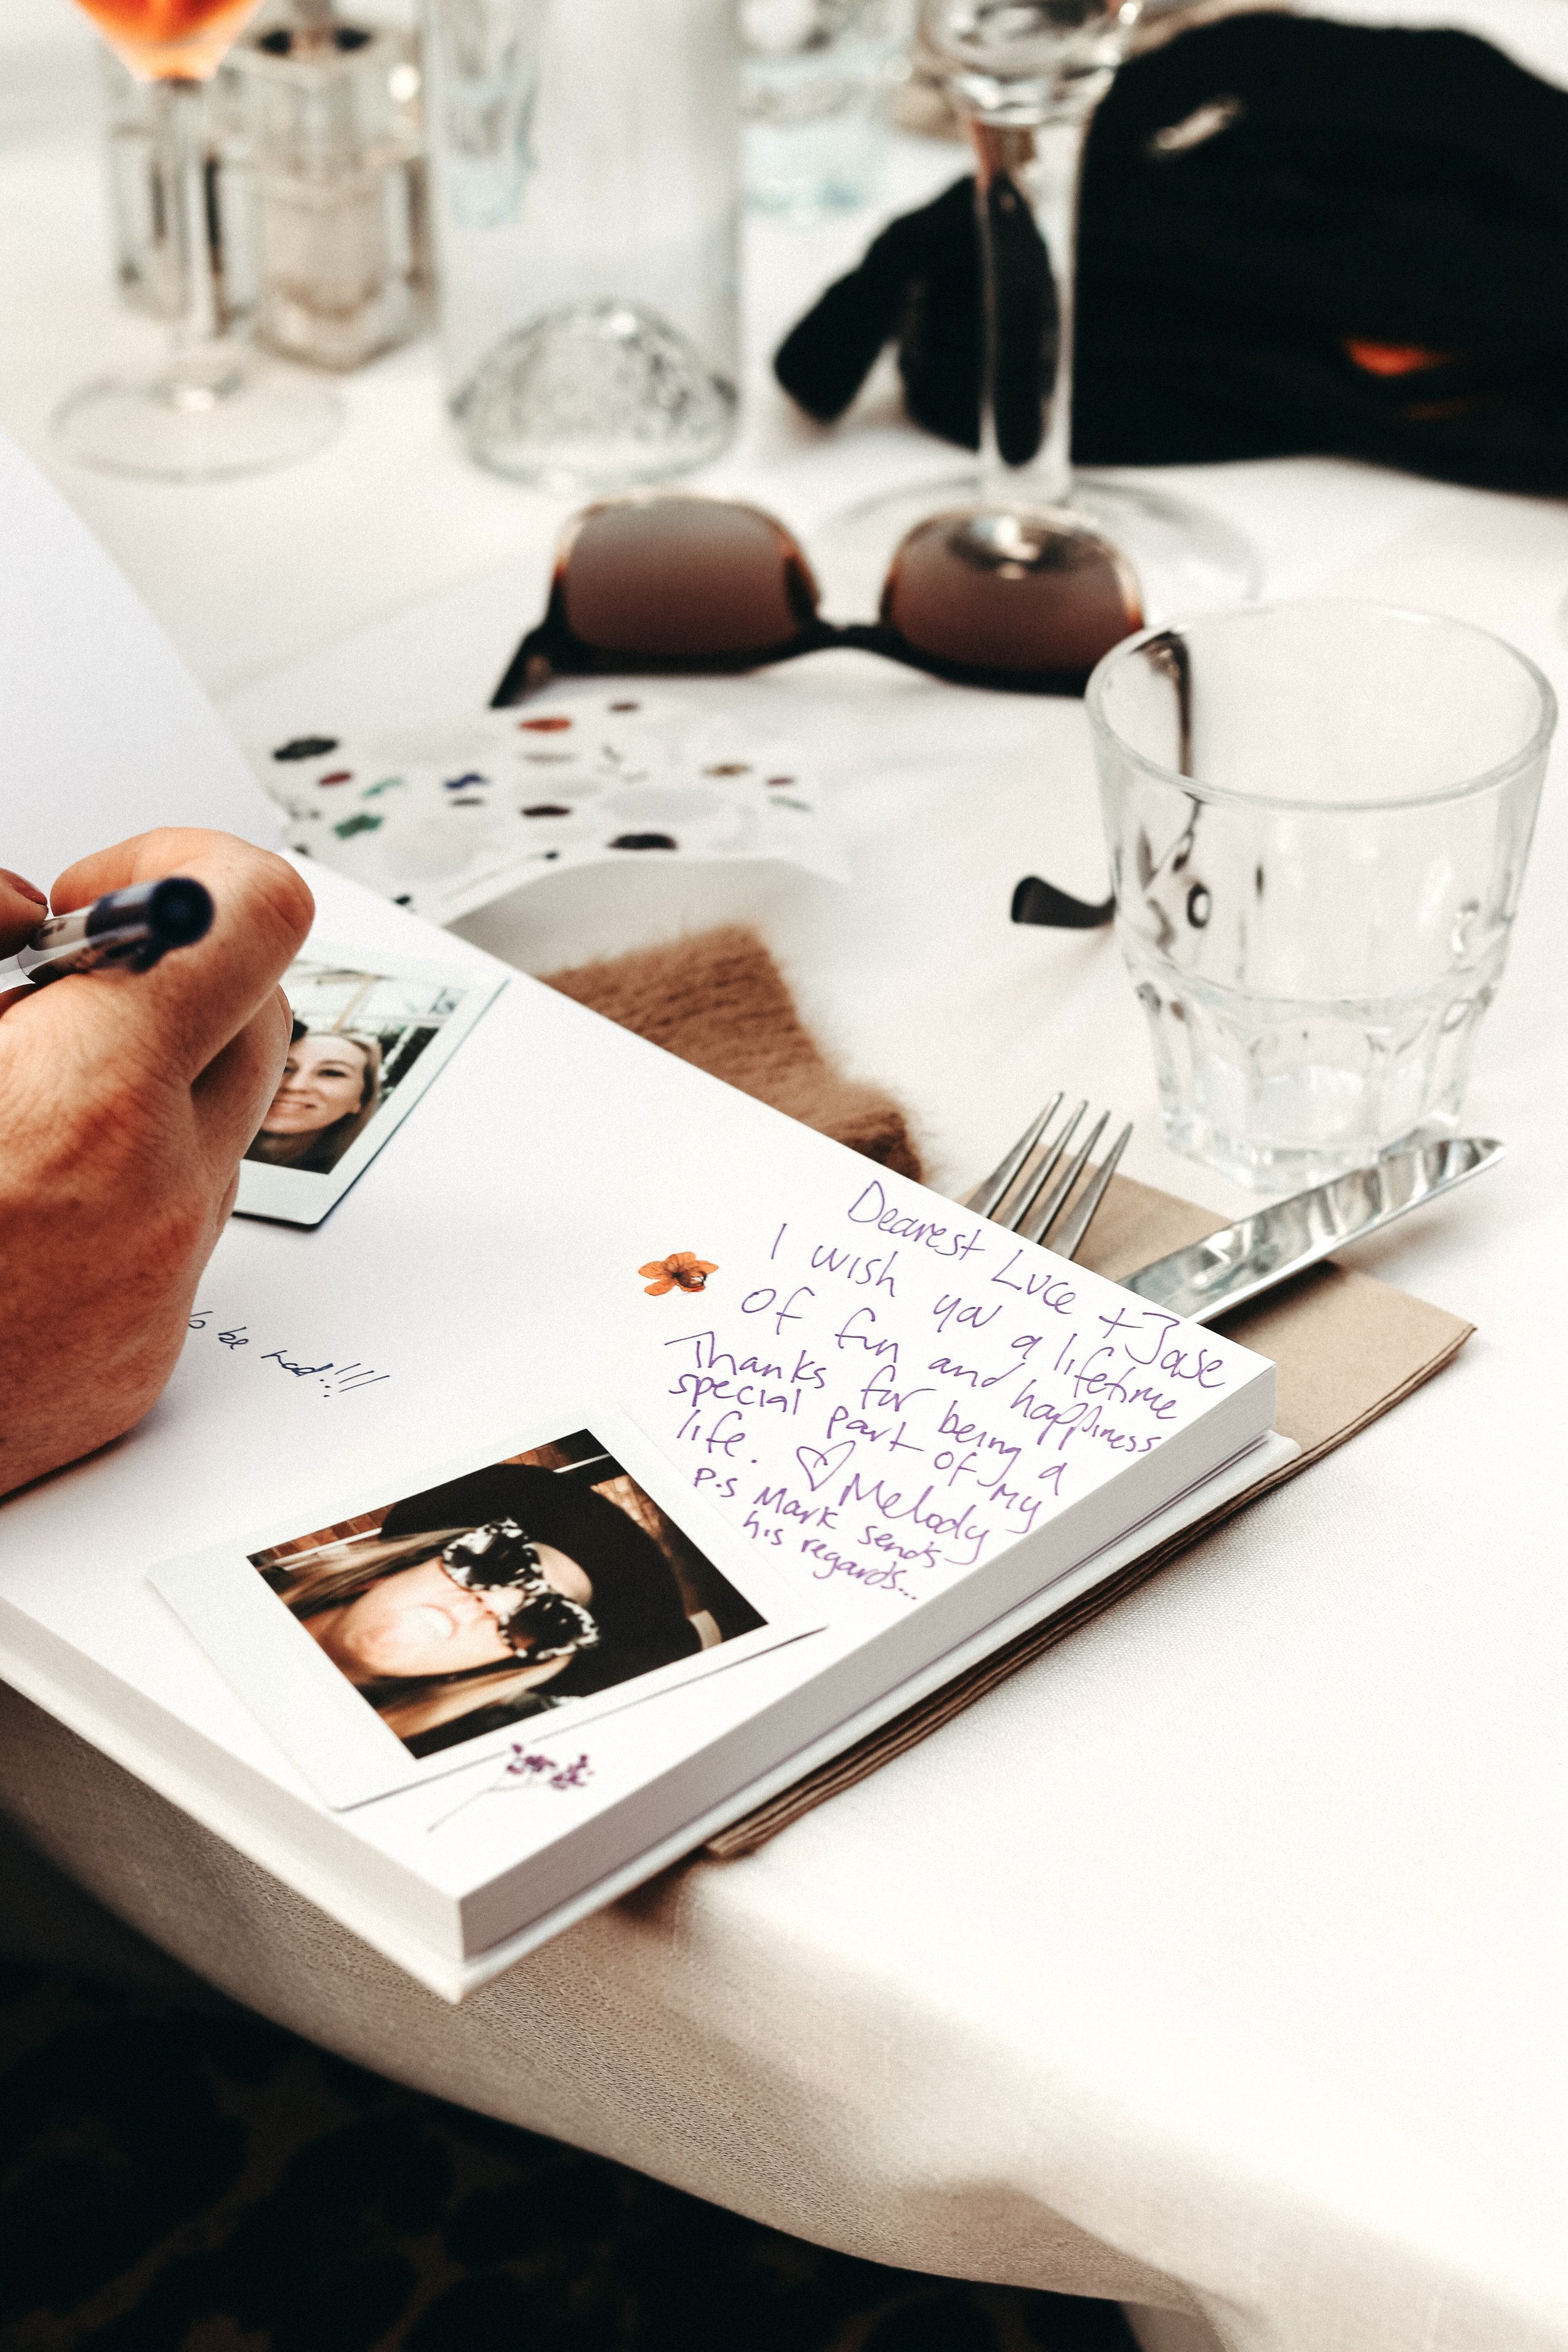 Dearest Luce + Jase
I wish you a lifetime
of fun and happiness
Thanks for being a
special part of my
life. ♡ Melody
P.S Mark sends
his regards...
to be had!!!!